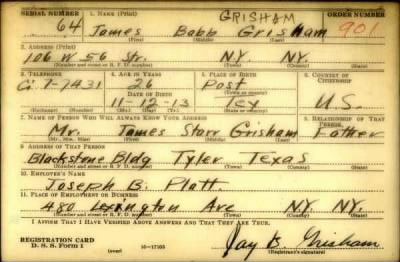 SERIAL NUMBER 1. NAME (Print) GRISHAM ORDER NUMBER
64 James Babb Grisham 901
(First) (Middle) (Last)
2. ADDRESS (Print)
106 W 56 Str. N.Y. N.Y.
(Number and street or R. F. D. number) (Town) (County) (State)
3. TELEPHONE 4. AGE IN YEARS 5. PLACE OF BIRTH 6. COUNTRY OF CITIZENSHIP
Ci 7-7431 26 Post
DATE OF BIRTH (Town or county)
11-12-13 Tex U.S.
(Exchange) (Number) (Mo.) (Day) (Yr.) (State or country)
7. NAME OF PERSON WHO WILL ALWAYS KNOW YOUR ADDRESS 8. RELATIONSHIP OF THAT PERSON
Mr. James Starr Grisham Father
(Mr., Mrs., Miss) (First) (Middle) (Last)
9. ADDRESS OF THAT PERSON
Blackstone Bldg Tyler Texas
(Number and street or R. F. D. number) (Town) (County) (State)
10. EMPLOYER'S NAME
Joseph B. Platt.
11. PLACE OF EMPLOYMENT OR BUSINESS
480 Lexington Ave N.Y. N.Y.
(Number and street or R. F. D. number) (Town) (County) (State)
I AFFIRM THAT I HAVE VERIFIED ABOVE ANSWERS AND THAT THEY ARE TRUE.
REGISTRATION CARD
D. S. S. FORM 1 (over) 16-17105 Jay B. Grisham
(Registrant's signature)